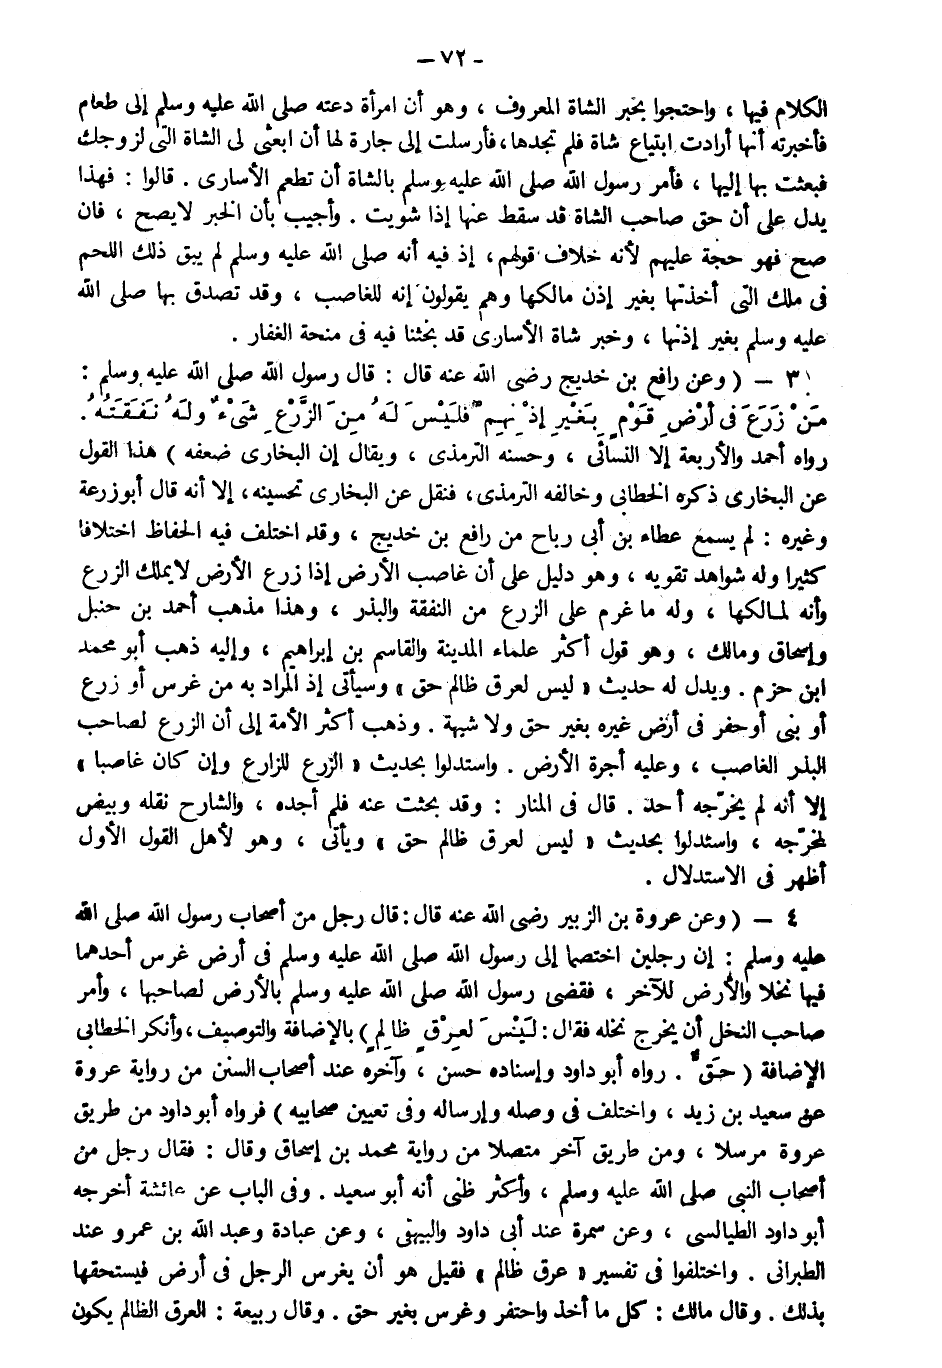 - ٧٢ -
الكلام فيها ، واحتجوا بخبر الشاة المعروف ، وهو أن امرأة دعته صلى الله عليه وسلم إلى طعام
فأخبرته أنها أرادت ابتياع شاة فلم تجدها، فأرسلت إلى جارة لها أن ابعثى لى الشاة التى لزوجك
فبعثت بها إليها ، فأمر رسول الله صلى الله عليه وسلم بالشاة أن تطعم الأسارى . قالوا : فهذا
يدل على أن حق صاحب الشاة قد سقط عنها إذا شويت . وأجيب بأن الخبر لايصح ، فان
صح فهو حجة عليهم لأنه خلاف قولهم، إذ فيه أنه صلى الله عليه وسلم لم يبق ذلك اللحم
فى ملك التى أخذتها بغير إذن مالكها وهم يقولون إنه للغاصب ، وقد تصدق بها صلى الله
عليه وسلم بغير إذنها ، وخبر شاة الأسارى قد بحثنا فيه فى منحة الغفار .
٣ - ( وعن رافع بن خديج رضى الله عنه قال : قال رسول الله صلى الله عليه وسلم :
مَنْ زَرَعَ فى أَرْضِ قَوْمٍ بِغَيْرِ إذْنِهِمْ فَلَيْسَ لَهُ مِنَ الزَّرْعِ شَىْءٌ ولَهُ نَفَقَتُهُ .
رواه أحمد والأربعة إلا النسائى ، وحسنه الترمذى ، ويقال إن البخارى ضعفه ) هذا القول
عن البخارى ذكره الخطابى وخالفه الترمذى، فنقل عن البخارى تحسينه، إلا أنه قال أبوزرعة
وغيره : لم يسمع عطاء بن أبى رباح من رافع بن خديج ، وقد اختلف فيه الحفاظ اختلافا
كثيرا وله شواهد تقويه ، وهو دليل على أن غاصب الأرض إذا زرع الأرض لايملك الزرع
وأنه لمالكها ، وله ماغرم على الزرع من النفقة والبذر ، وهذا مذهب أحمد بن حنبل
وإسحاق ومالك ، وهو قول أكثر علماء المدينة والقاسم بن إبراهيم ، وإليه ذهب أبو محمد
ابن حزم . ويدل له حديث « ليس لعرق ظالم حق » وسيأتى إذ المراد به من غرس أو زرع
أو بنى أوحفر فى أرض غيره بغير حق ولا شبهة . وذهب أكثر الأمة إلى أن الزرع لصاحب
البذر الغاصب ، وعليه أجرة الأرض . واستدلوا بحديث « الزرع للزارع وإن كان غاصبا »
إلا أنه لم يخرّجه أحد . قال فى المنار : وقد بحثت عنه فلم أجده ، والشارح نقله وبيض
لمخرّجه ، واستدلوا بحديث « ليس لعرق ظالم حق » ويأتى ، وهو لأهل القول الأول
أظهر فى الاستدلال .
٤ - ( وعن عروة بن الزبير رضى الله عنه قال : قال رجل من أصحاب رسول الله صلى الله
عليه وسلم : إن رجلين اختصما إلى رسول الله صلى الله عليه وسلم فى أرض غرس أحدهما
فيها نخلا والأرض للآخر ، فقضى رسول الله صلى الله عليه وسلم بالأرض لصاحبها ، وأمر
صاحب النخل أن يخرج نخله فقال : لَيْسَ لعِرْقٍ ظالِمٍ ) بالإضافة والتوصيف، وأنكر الخطابى
الإضافة ( حَقٌّ . رواه أبو داود وإسناده حسن ، وآخره عند أصحاب السنن من رواية عروة
عن سعيد بن زيد ، واختلف فى وصله وإرساله وفى تعيين صحابيه ) فرواه أبوداود من طريق
عروة مرسلا ، ومن طريق آخر متصلا من رواية محمد بن إسحاق وقال : فقال رجل من
أصحاب النبى صلى الله عليه وسلم ، وأكثر ظنى أنه أبو سعيد . وفى الباب عن عائشة أخرجه
أبو داود الطيالسى ، وعن سمرة عند أبى داود والبيهقى ، وعن عبادة وعبد الله بن عمرو عند
الطبرانى . واختلفوا فى تفسير « عرق ظالم » فقيل هو أن يغرس الرجل فى أرض فيستحقها
بذلك . وقال مالك : كل ما أخذ واحتفر وغرس بغير حق . وقال ربيعة : العرق الظالم يكون